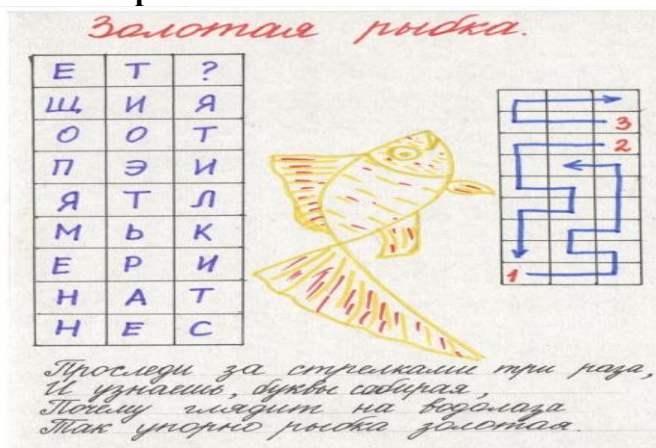 Золотая рыбка.
Е Т ?
Щ И Я
О О Т
П Э И
Я Т Л
М Ь К
Е Р И
Н А Т
Н Е С
3
2
1
Проследи за стрелками три раза,
И узнаешь, буквы собирая,
Почему глядит на водолаза
Так упорно рыбка золотая.